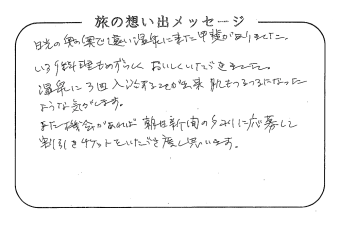 旅の想い出メッセージ
日光の奥の奥で遠い温泉に来た甲斐がありました。
いろり料理もめずらしく おいしくいただきました。
温泉に3回入浴することが出来 肌もつるつるになった
ような気がします。
また機会があれば 朝日新聞の夕刊に応募して
割引きチケットをいただき度し思います。